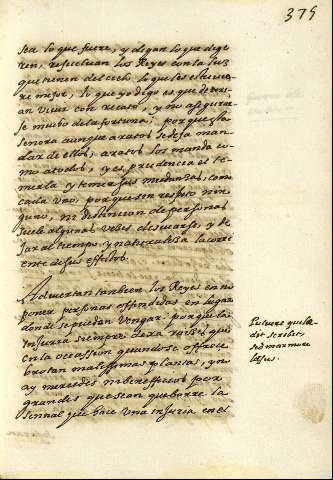 375
sea lo que fuere, y digan lo que dige
ren, resuelvan los Reyes con la luz
que tienen del cielo lo que les estuvie
re mejor, lo que yo digo es que devri
an vivir con recato, y no assegurar
se mucho de la fortuna, porque esta
señora aunque a ratos se deja man
dar de ellos, a ratos los manda co
mo a todos, y es prudencia el te
merla y temer sus mudanzas, como
cada uno, porque sin respeto nin
guno, ni distincion de personas
suele algunas veces descuidarse, y de
jar al tiempo y naturaleza la corri
ente de sus effectos.
Adviertan tambien los Reyes en no
poner personas offendidas en lugar
donde se puedan vengar porque la
injuria siempre dexa raizes que
en la occassion quando se offrece
brotan malissimas plantas, y no
ay mercedes ni beneficios por
grandes que sean que borre la
sennal que hace una injuria en el
Pulvere qui lae
dit scribit
sed marmore
lesus.